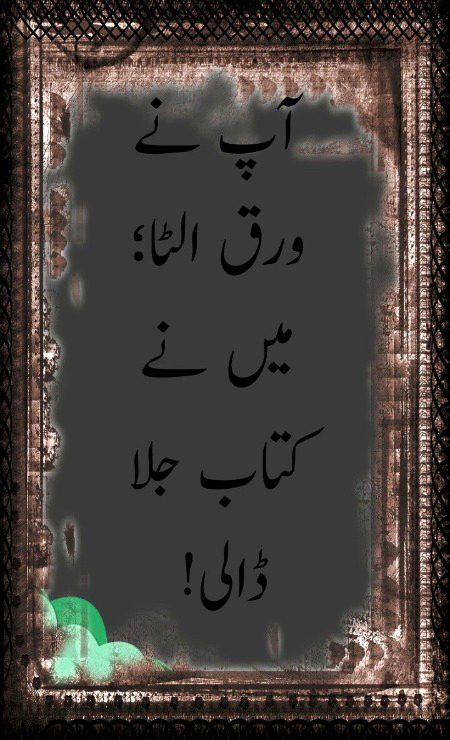 آپ نے
ورق الٹا؛
میں نے
کتاب جلا
ڈالی!